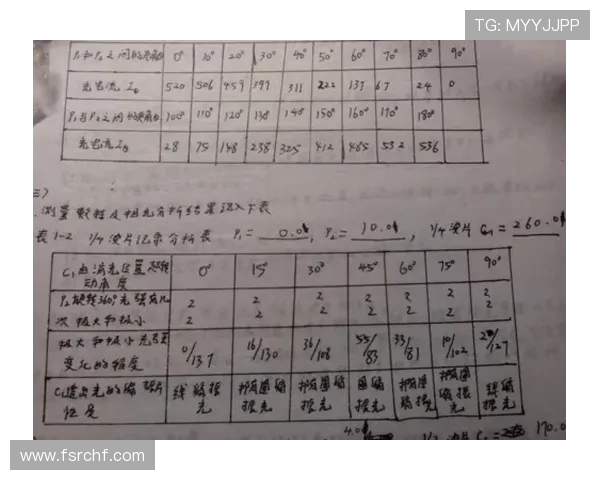 TG: MYYJJPP
P₁和P₂之间的夹角θ 0° 10° 20° 30° 40° 50° 60° 70° 80° 90°
光电流 Iθ 520 506 459 399 311 222 137 67 24 0
P₁与P₂之间的夹角θ 100° 110° 120° 130 140° 150° 160° 170° 180°
光电流Iθ 28 75 148 238 325 412 485 532 536
三)
测量数据及相光分析结果记入下表
表1-2 1/4波片记录分析表 P₁= 0.0°, P₂= 10.0°, 1/4波片 = 260.0°
C₁由消光位置起转动角度 0° 15° 30° 45° 60° 75° 90°
P₂旋转360°光强有几 2 2 2 2 2 2 2
次极大和极小 2 2 2 2 2 2 2
极大和极小光电流 0/137 16/130 36/108 55/83 33/81 10/102 /127
变化的幅度
C₁透出光的偏振 线偏振 椭圆偏 椭圆偏 圆偏 椭圆 椭圆 线偏
性质 光 振光 振光 振光 偏振光 偏振光 振光
4.0°
1/2波片 C₂= 170.0
www.fsrchf.com